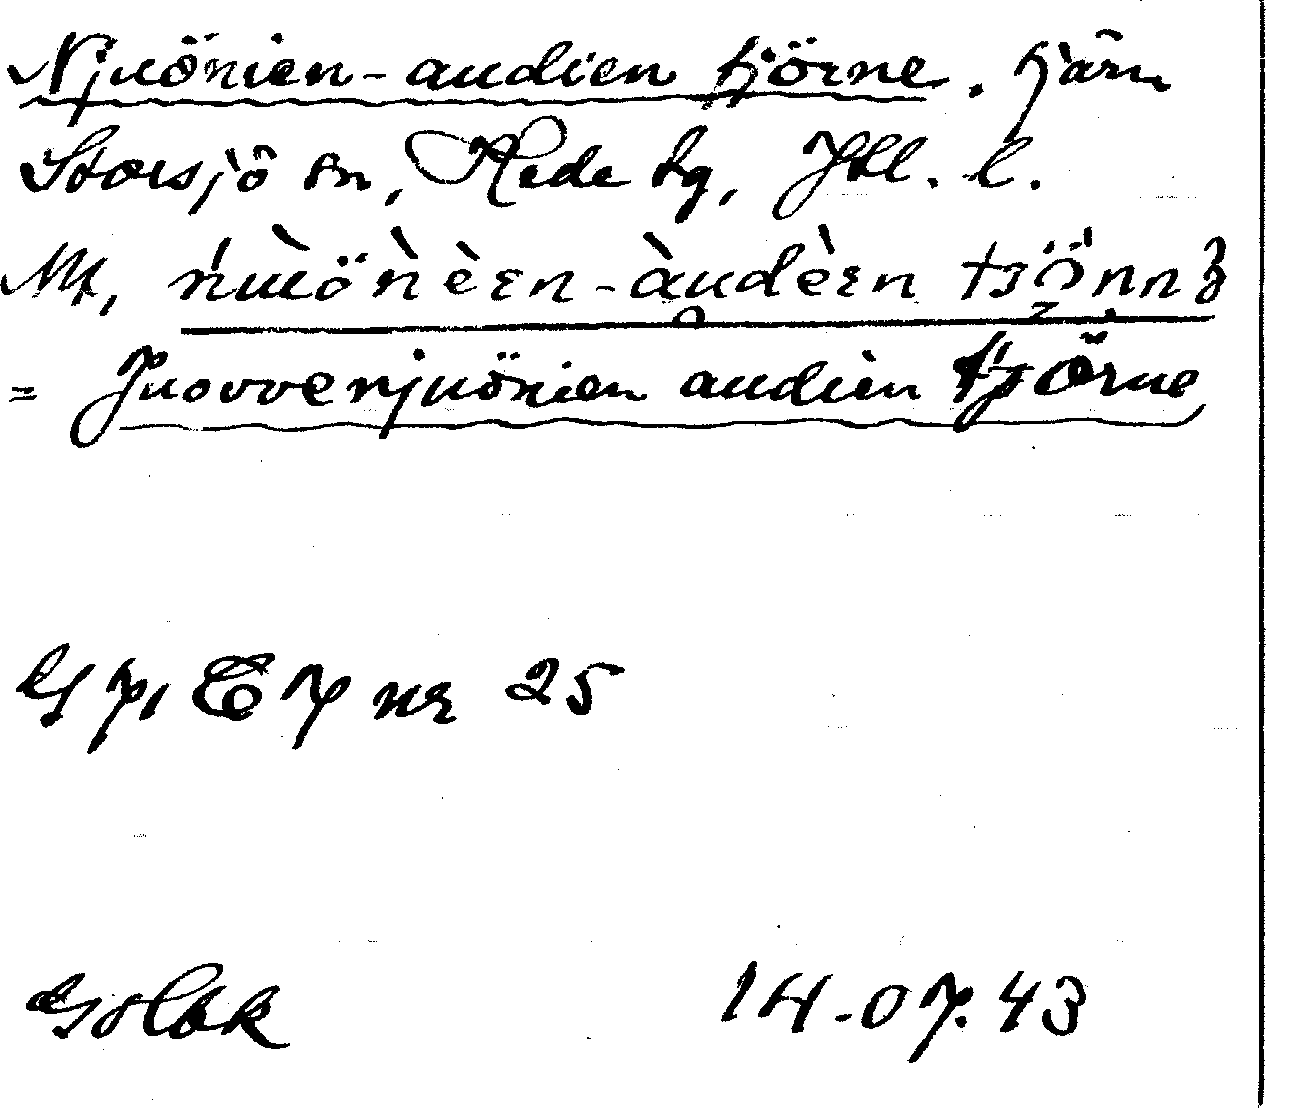 Njuönien-audien tjörne. tjärn
Storsjö sn, Hede tg, Jtl. l.
Ut, ńɯöǹèɛn-àudèɛn tsÖnnʒ
= Juovvenjuönien audien tjörne
Gp. EP nr 25
14.07.43